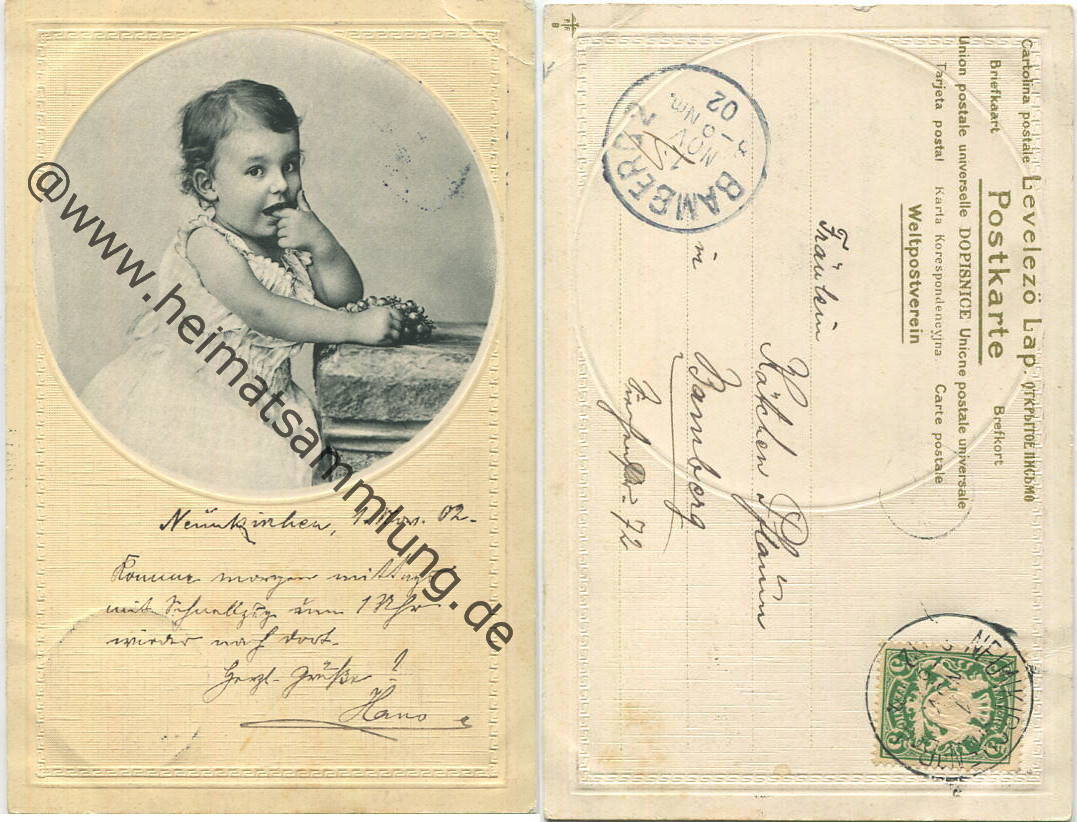 @www.heimatsammlung.de
Neunkirchen, Nov. 02.
Komme morgen mittags
mit Schnellzug um 1 Uhr
wieder nach dort.
Herzl. Grüße!
Cartolina postale Levelező Lap. ОТКРЫТОЕ ПИСЬМО
Briefkaart Postkarte Brefkort
Union postale universelle DOPISNICE Unione postale universale
Tarjeta postal Karta Korespondencyjna Carte postale
Weltpostverein
BAMBERG 2
NOV
Nm.
02
Fräulein
Kätchen Pflaum
in Bamberg
72
NEUNKIRCHEN
5